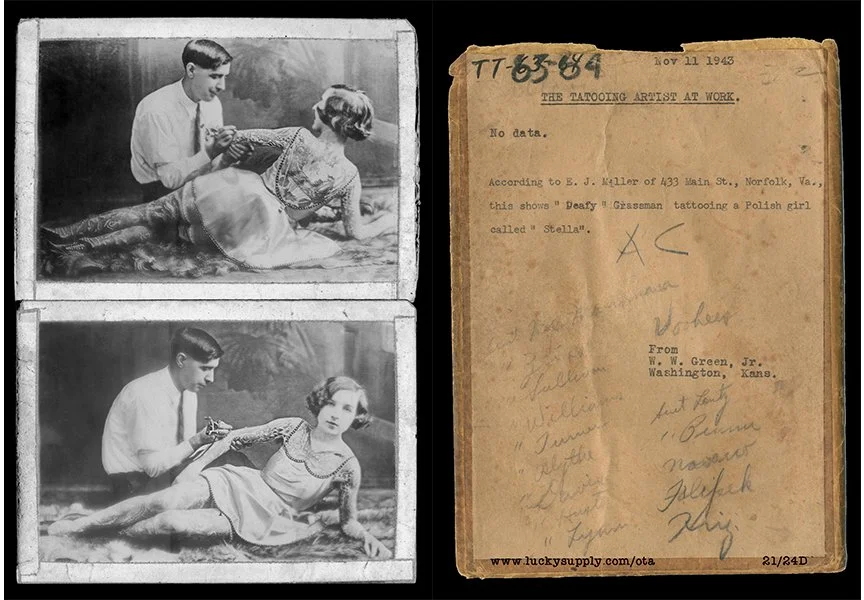 TT-63-64
Nov 11 1943
THE TATOOING ARTIST AT WORK.
No data.
According to E. J. Miller of 433 Main St., Norfolk, Va.,
this shows " Deafy " Grassman tattooing a Polish girl
called " Stella".
Voorhees
From
W. W. Green, Jr.
Washington, Kans.
" Sullivan
" Williams
" Turner
" Blythe
" Davis
" Lynn
Sent Lentz
Navarro
Filipek
King
www.luckysupply.com/ota
21/24D